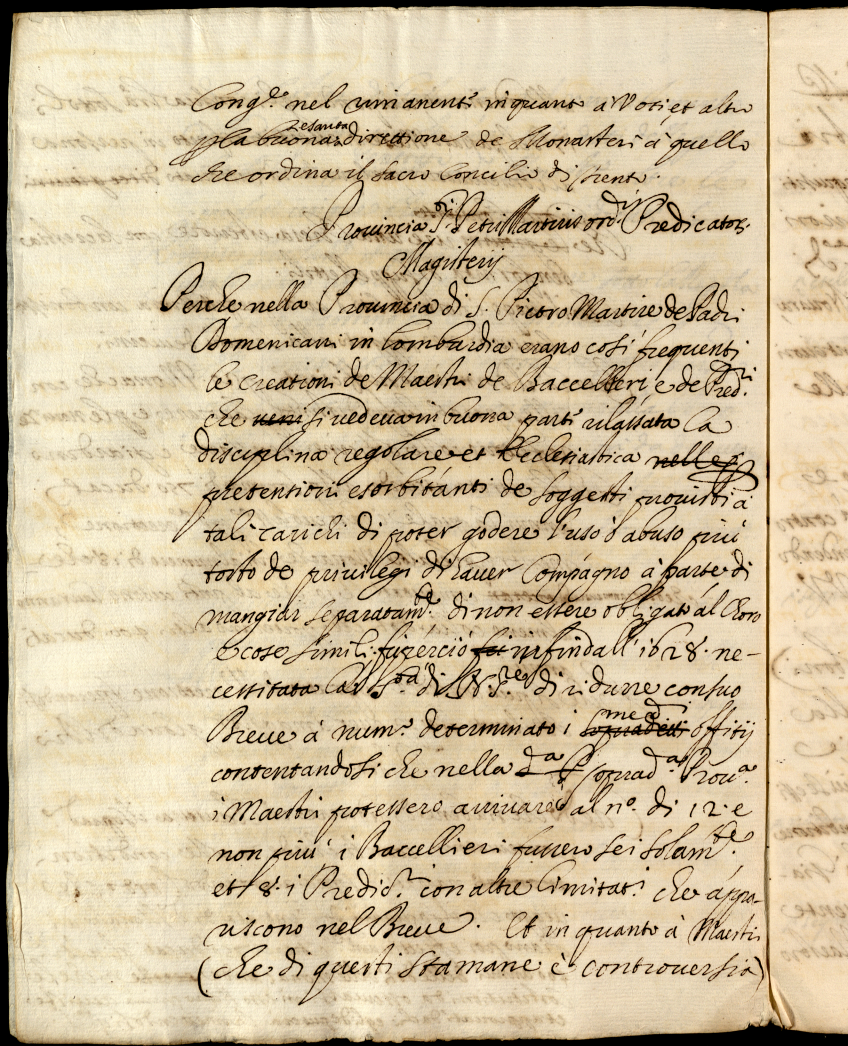 Cong.e nel rimanente inquanto a Voti et altro
p la buona e santa direttione de Monasteri à quello
che ordina il sacro Concilio di Trento.
Provincia S.ti Petri Martiris ord.s Predicator.
Magisterij
Perche nella Provincia di S. Pietro Martire de Padri
Domenicani in Lombardia erano così frequenti
le creationi de Maestri de Baccellieri, e de Pred.ri
che veni si vedeva in buona parte rilassata la
disciplina regolare et Ecclesiastica nelle p
pretentioni esorbitanti de soggetti provisti à
tali carichi di poter godere l'uso ò abuso più
tosto de privilegi di haver Compagno à parte di
mangiar separatam.te di non essere obligati al Choro
e cose simili: fù perciò fu infin dall' 1628. ne-
cessitata la S.tà di N. S.re di ridurre con suo
Breve à num.o determinato i sopradetti med.i offitij
contentandosi che nella d.a soprad.a Prov.a
i Maestri potessero arrivare al n.o di 12. e
non più i Baccellieri fussero sei solam.te
et 8. i Predic.ri con altre limitat.i che appa-
riscono nel Breve. Et in quanto à Maestri
(che di questi stamane è controversia)